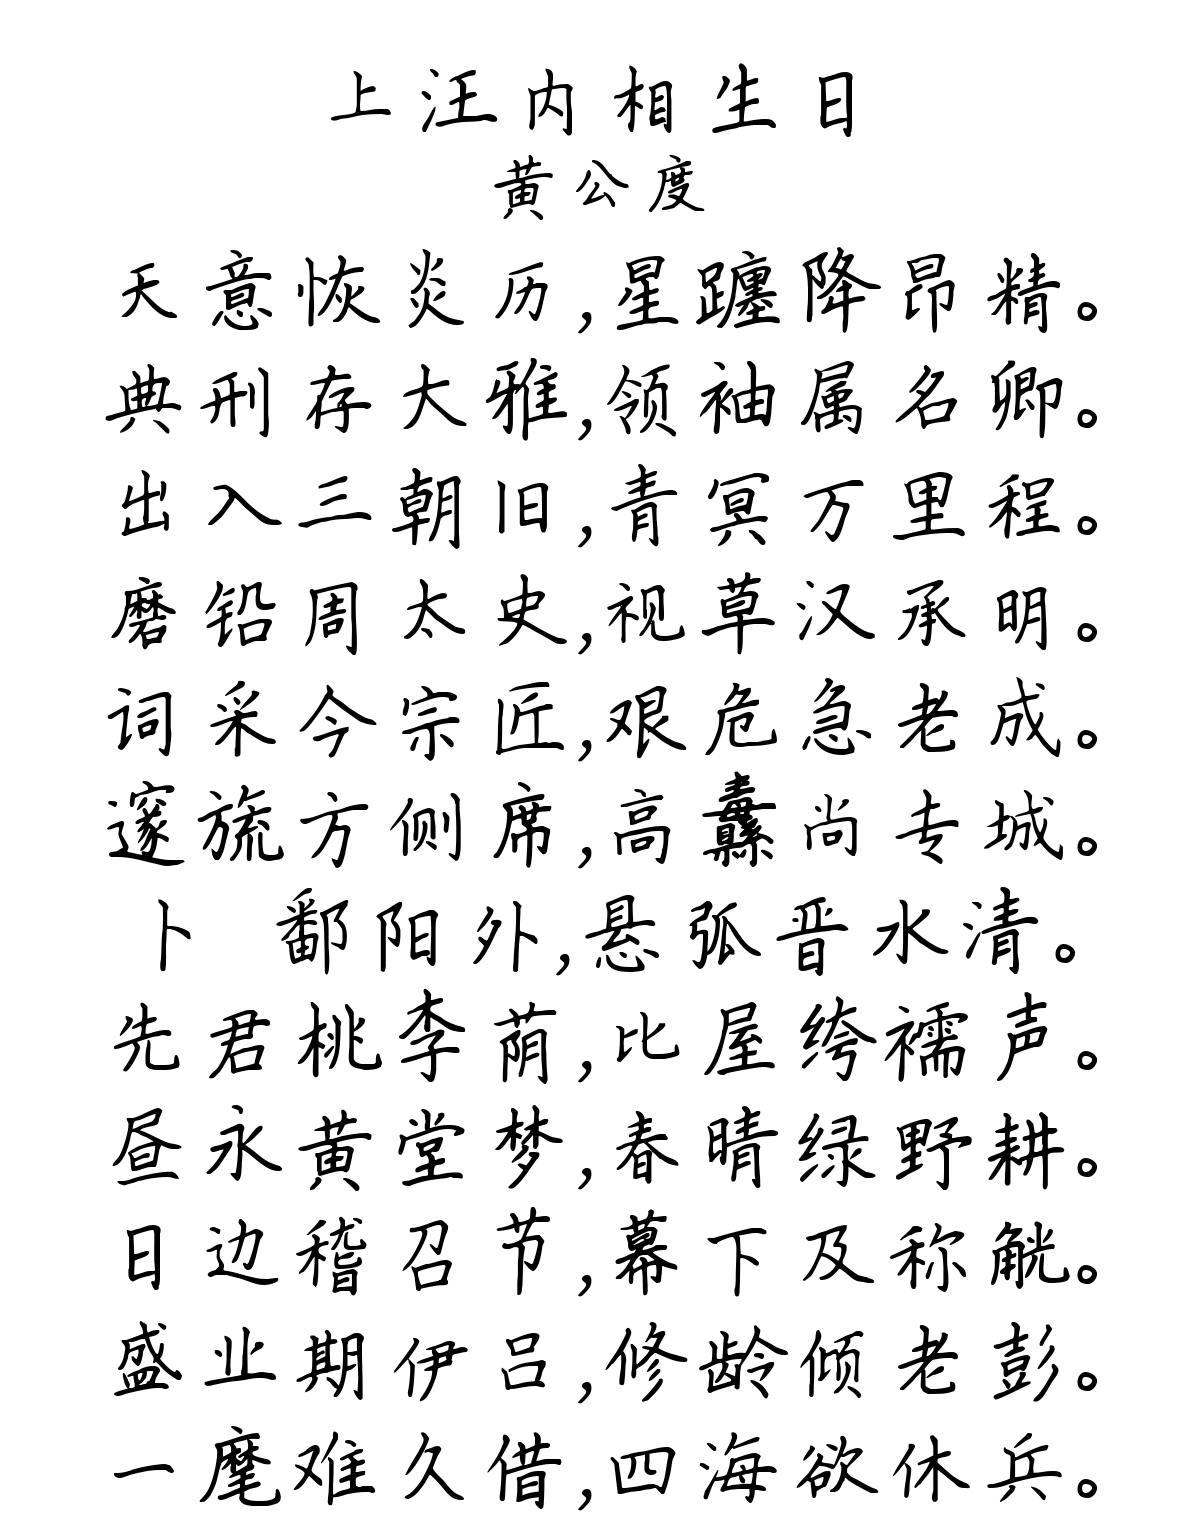 上汪内相生日
黄公度
天意恢炎历,星躔降昂精。
典刑存大雅,领袖属名卿。
出入三朝旧,青冥万里程。
磨铅周太史,视草汉承明。
词采今宗匠,艰危急老成。
邃旒方侧席,高纛尚专城。
卜 鄱阳外,悬弧晋水清。
先君桃李荫,比屋绔襦声。
昼永黄堂梦,春晴绿野耕。
日边稽召节,幕下及称觥。
盛业期伊吕,修龄倾老彭。
一麾难久借,四海欲休兵。